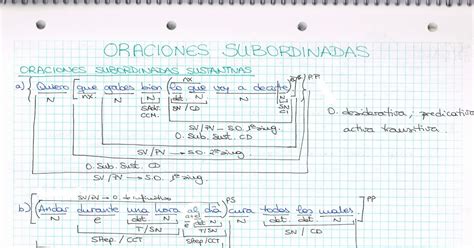 ORACIONES SUBORDINADAS
ORACIONES SUBORDINADAS SUSTANTIVAS
nx PP
a) {Quiero [que grabes bien (lo que voy a decirte)]}
N nx N N det N N N
SAdv CCM SN / CD SN CI
O. Sub. Sust. CD
SV/PV → S.O. 2ª sing.
O. Sub. Sust. CD
SV/PV → S.O. 1ª sing.
O. desiderativa, predicativa
activa transitiva.
SV/PV → O. de infinitivo PS PP
b) {[Andar durante una hora al día] cura todos los males}
N e det N a+el det N N det det N
T/SN T/SN SN / CD
SPrep / CCT SPrep / CCT